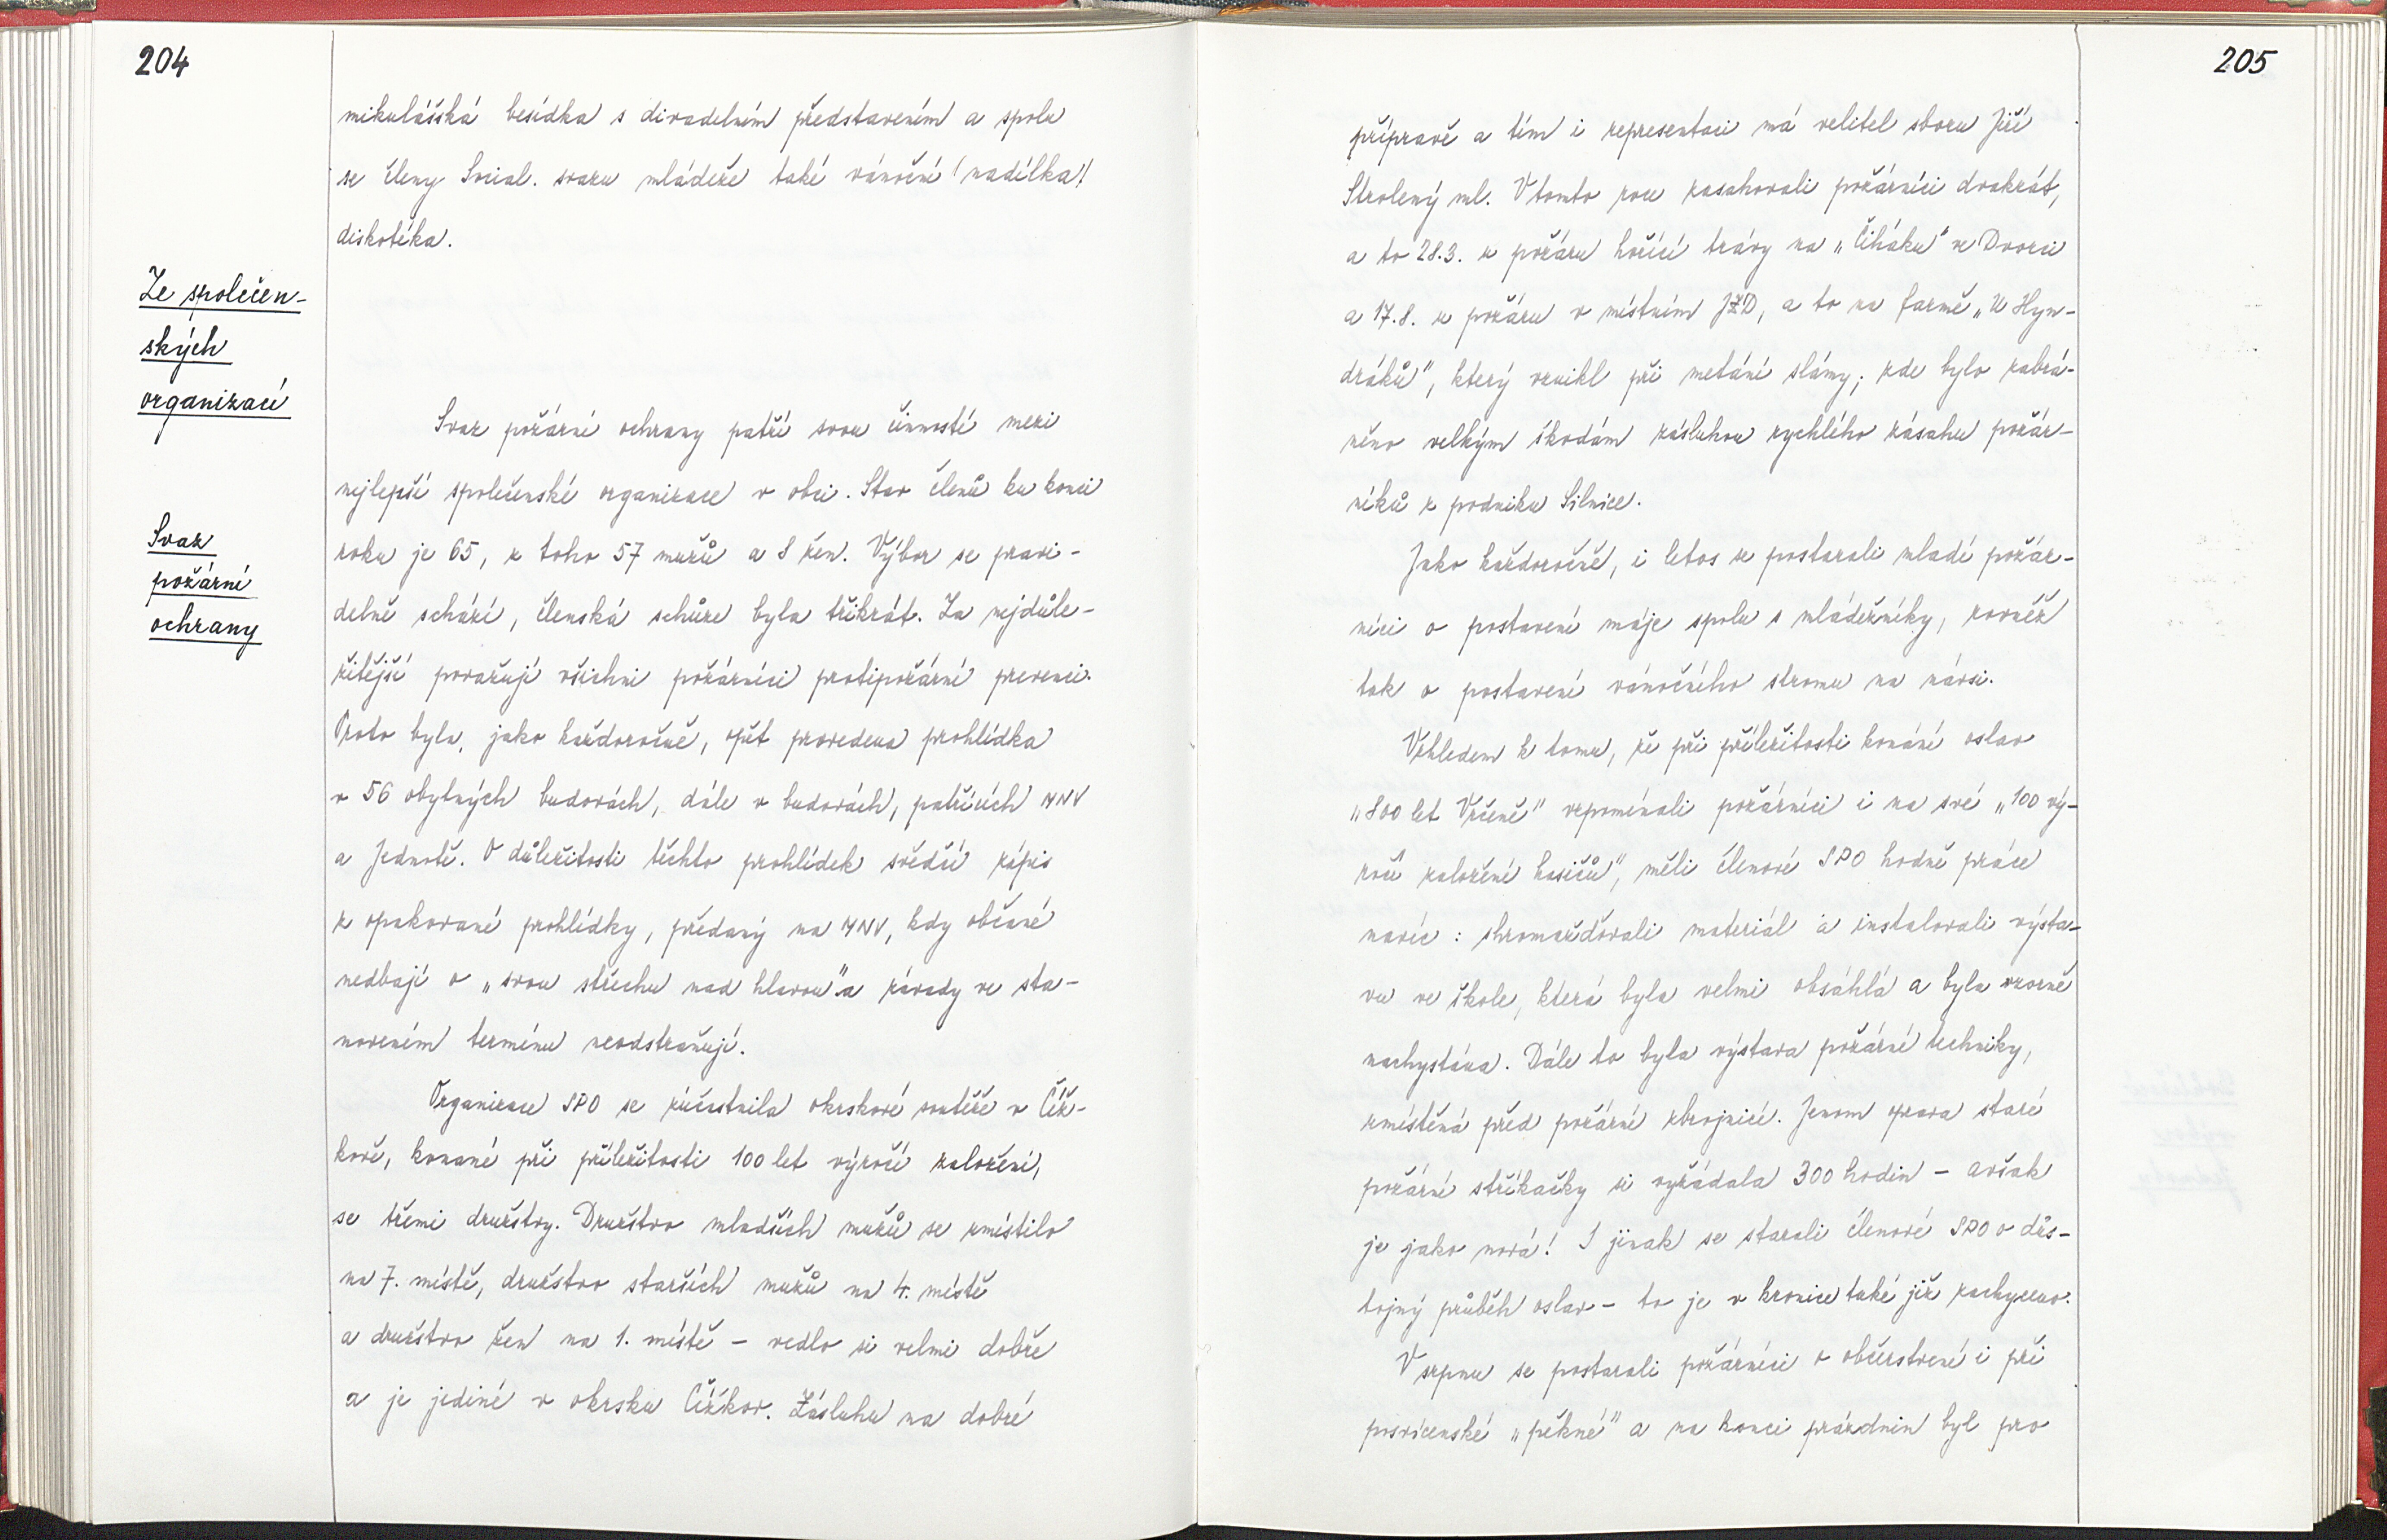 204
mikulášská besídka s divadelním představením a spolu
se členy Social. svazu mládeže také vánoční (nadílka)
diskotéka.
Ze společen-
ských
organizací
Svaz
požární
ochrany
Svaz požární ochrany patří svou činností mezi
nejlepší společenské organizace v obci. Stav členů ku konci
roku je 65, z toho 57 mužů a 8 žen. Výbor se pravi-
delně schází, členská schůze byla třikrát. Za nejdůle-
žitější považují všichni požárníci protipožární prevenci.
Proto byla, jako každoročně, opět provedena prohlídka
v 56 obytných budovách, dále v budovách, patřících MNV
a Jednotě. O důležitosti těchto prohlídek svědčí zápis
z opakované prohlídky, předaný na MNV, kdy občané
nedbají o „svou střechu nad hlavou" a závady ve sta-
noveném termínu neodstraňují.
Organizace SPO se zúčastnila okrskové soutěže v Číž-
kově, konané při příležitosti 100 let výročí založení,
se třemi družstvy. Družstvo mladších mužů se umístilo
na 7. místě, družstvo starších mužů na 4. místě
a družstvo žen na 1. místě - vedlo si velmi dobře
a je jediné v okrsku Čížkov. Zásluhu na dobré
205
přípravě a tím i representaci má velitel sboru Jiří
Strolený ml. V tomto roce zasahovali požárníci dvakrát,
a to 28.3. u požáru hořící trávy na „Čiháku" ve Dvorci
a 17.8. u požáru v místním JZD, a to na farmě „U Hyn-
dráků", který vznikl při metání slámy; kde bylo zabrá-
něno velkým škodám zásluhou rychlého zásahu požár-
níků z podniku Silnice.
Jako každoročně, i letos se postarali mladí požár-
níci o postavení máje spolu s mládežníky, rovněž
tak o postavení vánočního stromu na návsi.
Vzhledem k tomu, že při příležitosti konání oslav
„800 let Vrčeně" vzpomínali požárníci i na své „100 vý-
ročí založení hasičů", měli členové SPO hodně práce
navíc: shromažďovali materiál a instalovali výsta-
vu ve škole, která byla velmi obsáhlá a byla vzorně
nachystána. Dále to byla výstava požární techniky,
umístěná před požární zbrojnicí. Jenom oprava staré
požární stříkačky si vyžádala 300 hodin - avšak
je jako nová! I jinak se starali členové SPO o důs-
tojný průběh oslav - to je v kronice také již zachyceno.
V srpnu se postarali požárníci o občerstvení i při
posvícenské „pěkné" a na konci prázdnin byl pro